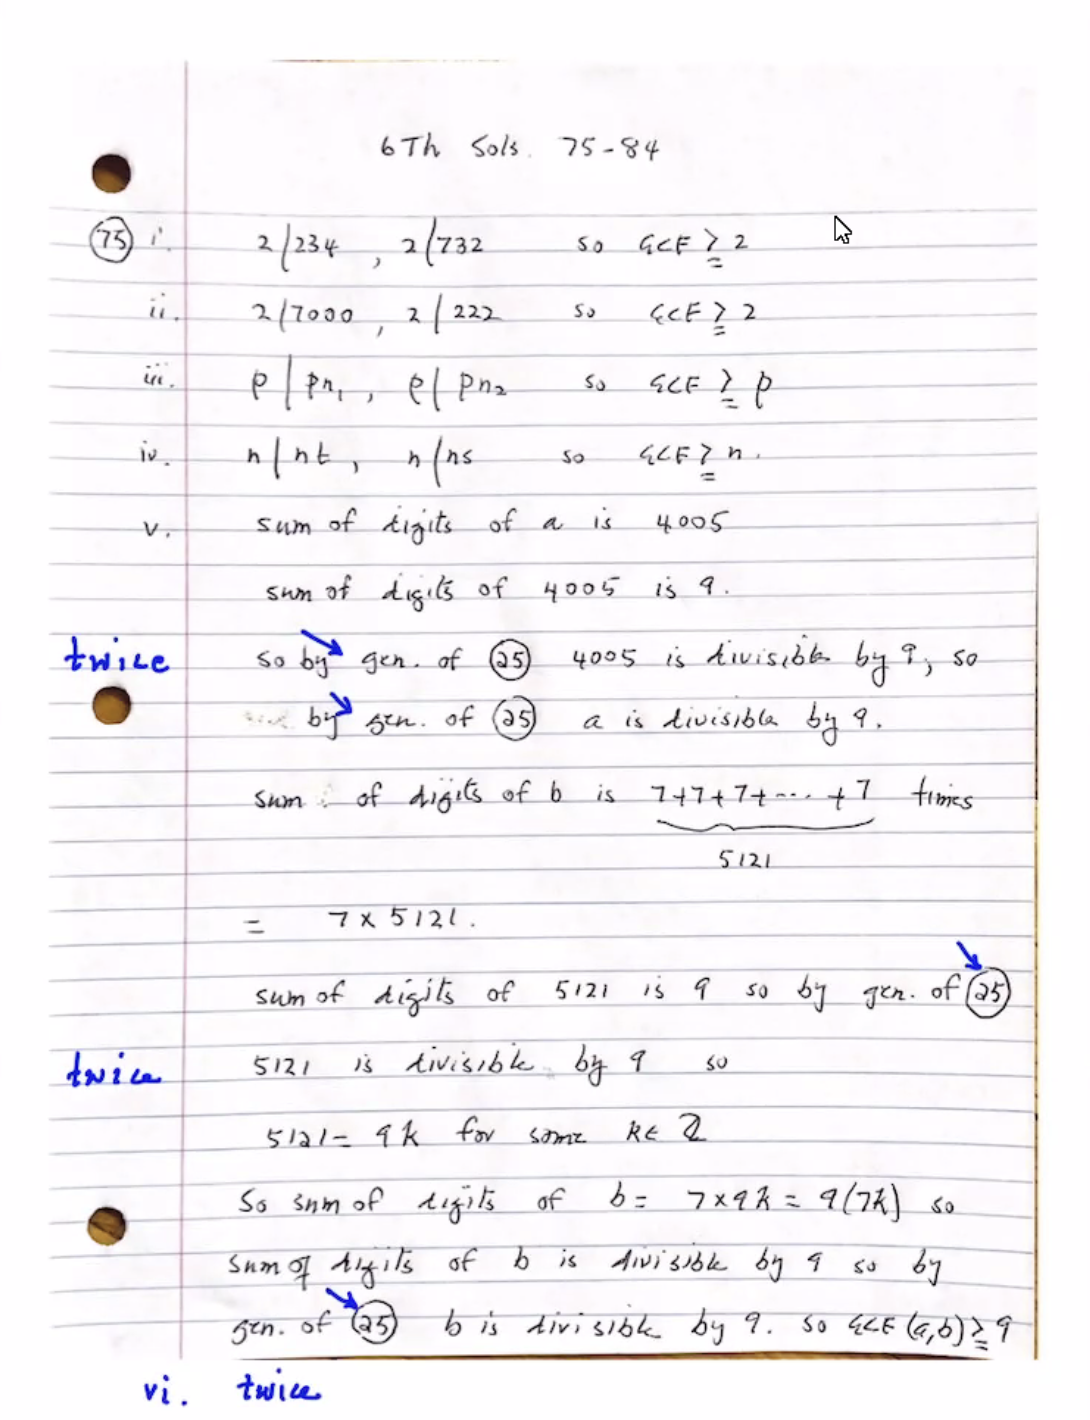 6Th Sols. 75-84
(75) i. 2/234, 2/732 so GCF ≧ 2
ii. 2/7000, 2/222 so GCF ≧ 2
iii. p | pn₁, p | pn₂ so GCF ≧ p
iv. n | nt, n | ns so GCF ≧ n.
v. sum of digits of a is 4005
sum of digits of 4005 is 9.
twice so by gen. of (25) 4005 is divisible by 9, so
by gen. of (25) a is divisible by 9.
sum of digits of b is 7+7+7+...+7 times
5121
= 7 x 5121.
sum of digits of 5121 is 9 so by gen. of (25)
twice 5121 is divisible by 9 so
5121 = 9k for some k∈ℤ
So sum of digits of b = 7x9k = 9(7k) so
sum of digits of b is divisible by 9 so by
gen. of (25) b is divisible by 9. so GCF (a,b) ≧ 9
vi. twice